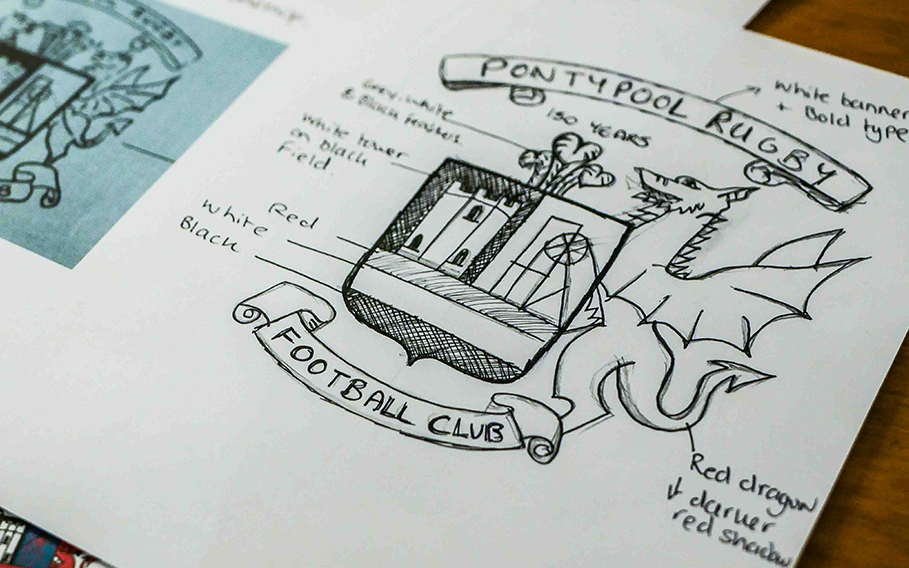 PONTYPOOL RUGBY
150 YEARS
White banner
+ Bold type
Grey, white
& Black feathers
White tower
on black
field.
Red
White
Black
FOOTBALL CLUB
Red dragon
↓ darker
red shadow